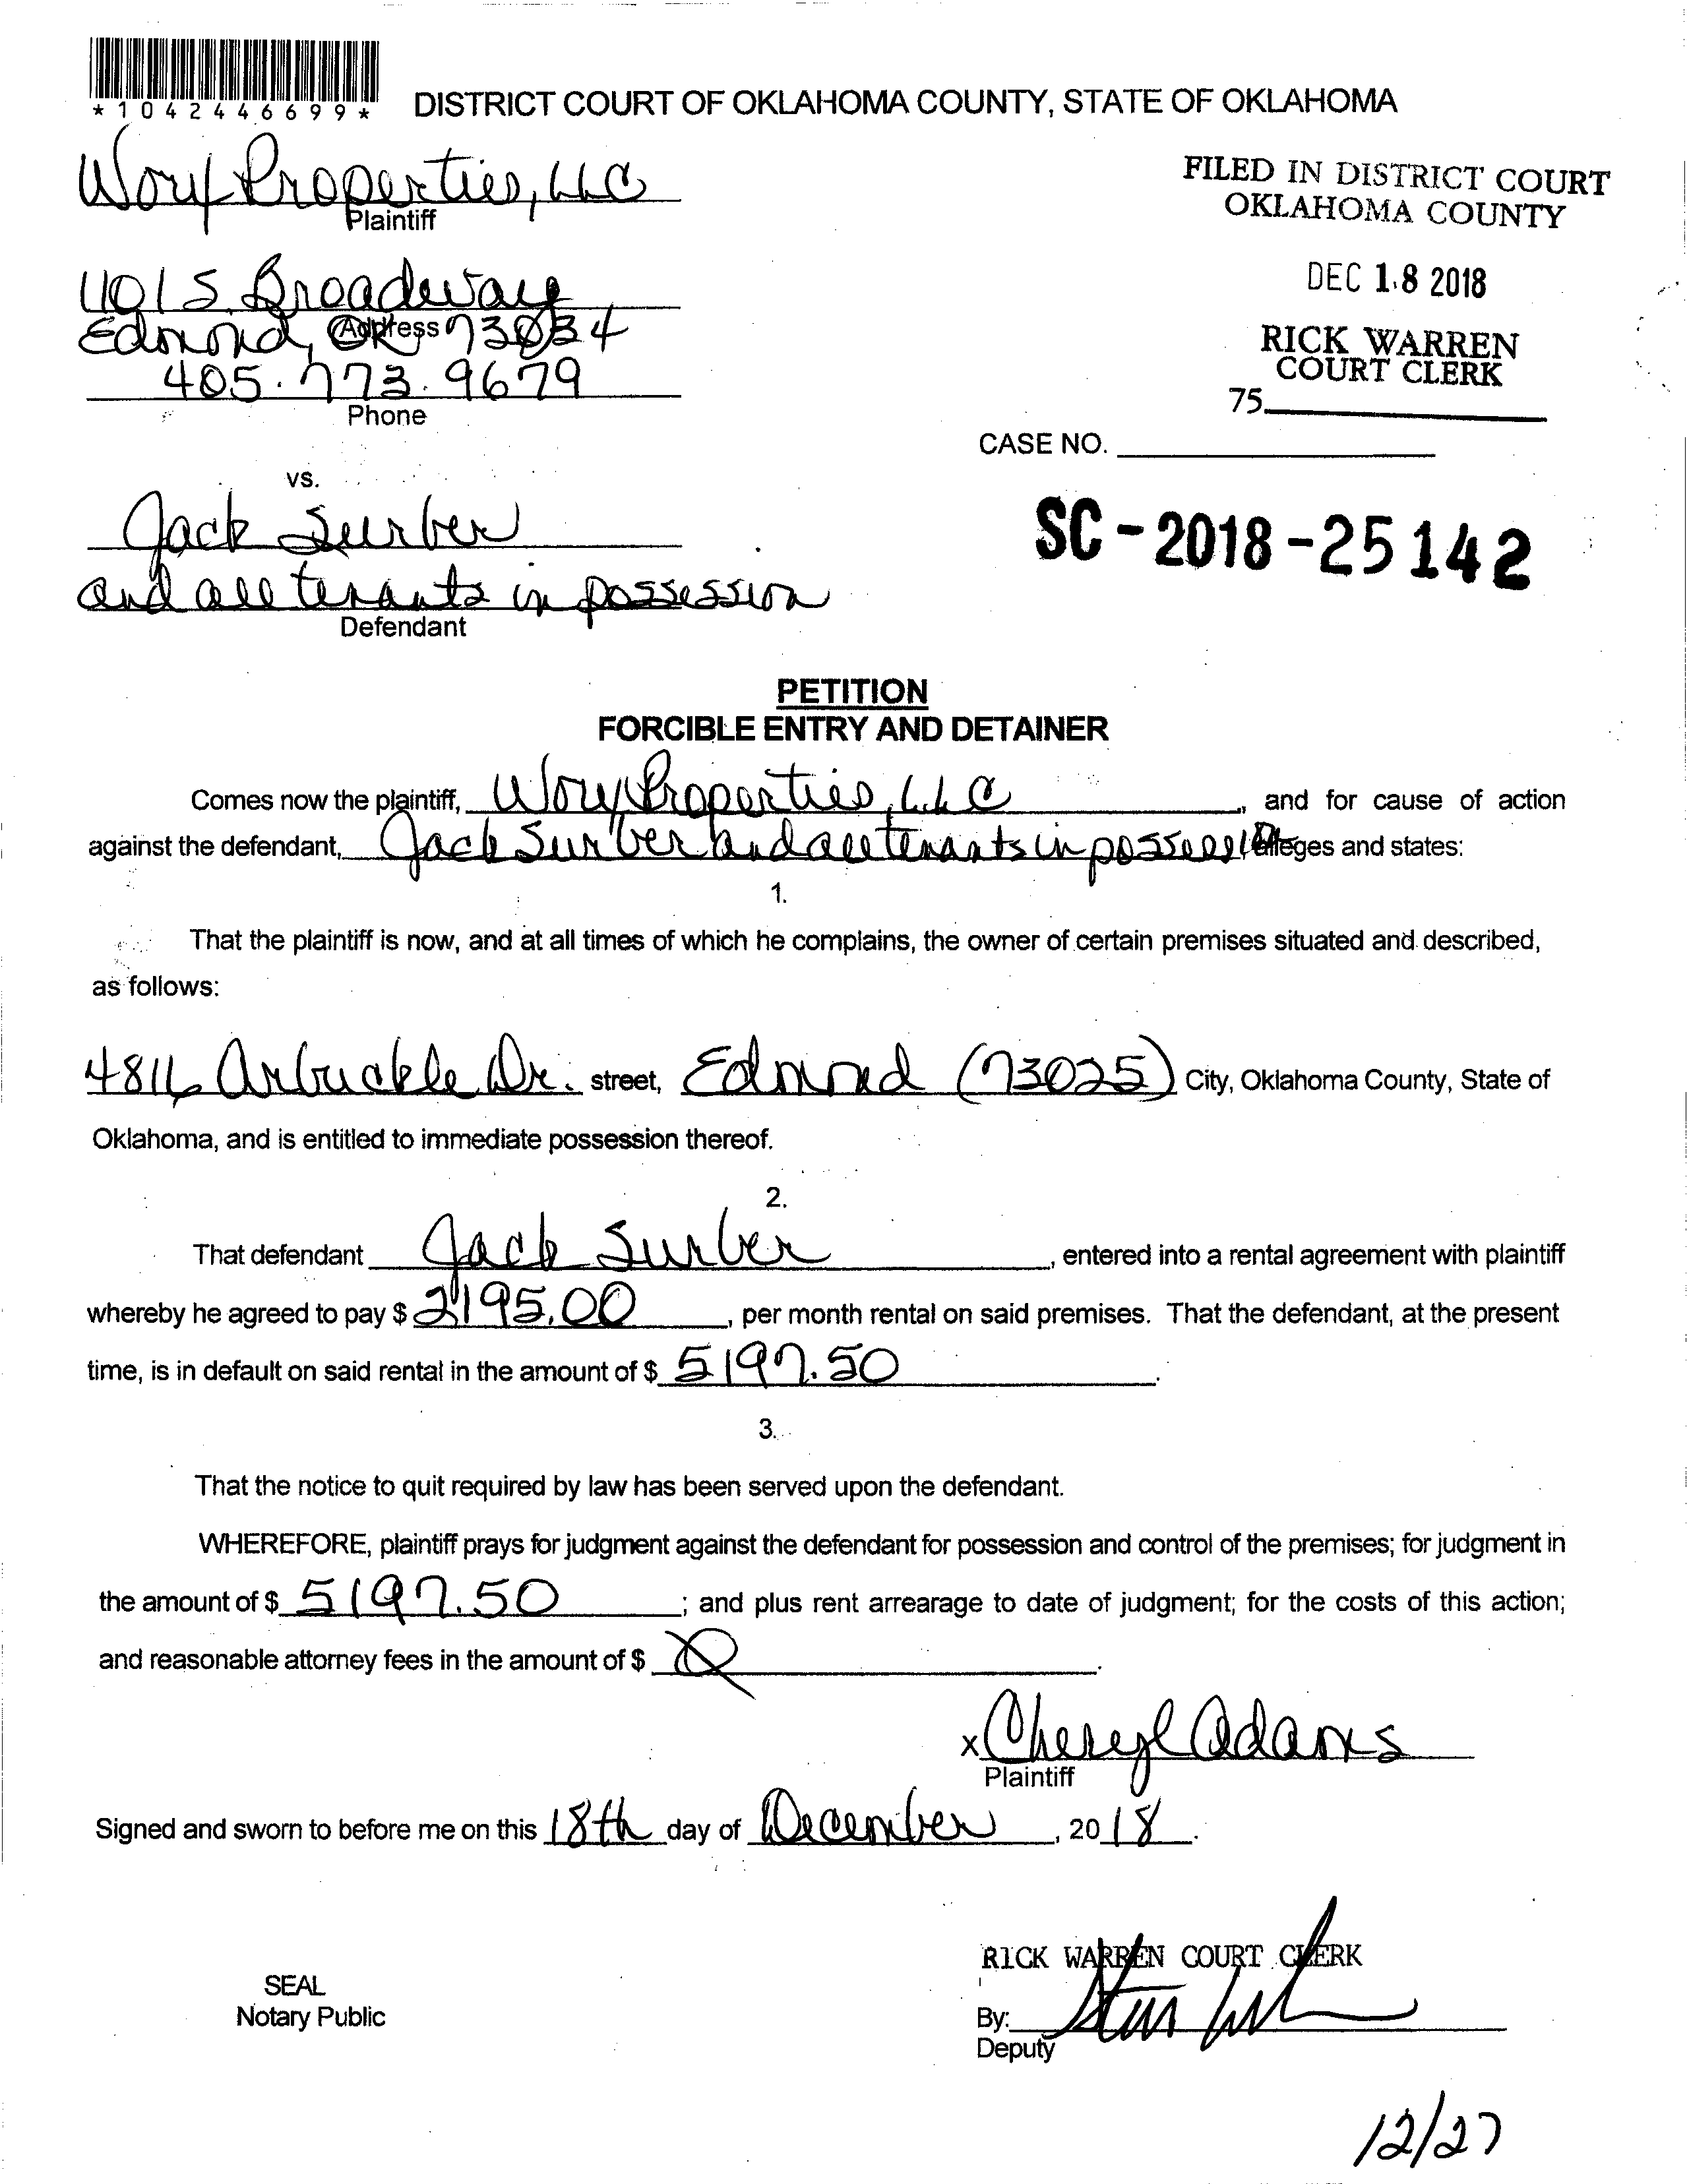 *1042446699*
DISTRICT COURT OF OKLAHOMA COUNTY, STATE OF OKLAHOMA
Properties, LLC
Plaintiff
FILED IN DISTRICT COURT
OKLAHOMA COUNTY
S. Broadway
Edmond, OK 73034
Address
DEC 18 2018
405.773.9679
Phone
RICK WARREN
COURT CLERK
75
CASE NO.
vs.
Jack Surber
SC-2018-25142
and all tenants in possession
Defendant
PETITION
FORCIBLE ENTRY AND DETAINER
Comes now the plaintiff, Properties, LLC, and for cause of action
against the defendant, Jack Surber and all tenants in possession alleges and states:
1.
That the plaintiff is now, and at all times of which he complains, the owner of certain premises situated and described,
as follows:
4816 Arbuckle Dr. street, Edmond (73025) City, Oklahoma County, State of
Oklahoma, and is entitled to immediate possession thereof.
2.
That defendant Jack Surber, entered into a rental agreement with plaintiff
whereby he agreed to pay $ 2195.00, per month rental on said premises. That the defendant, at the present
time, is in default on said rental in the amount of $ 5197.50.
3.
That the notice to quit required by law has been served upon the defendant.
WHEREFORE, plaintiff prays for judgment against the defendant for possession and control of the premises; for judgment in
the amount of $ 5197.50; and plus rent arrearage to date of judgment; for the costs of this action;
and reasonable attorney fees in the amount of $
x Cheryl Adams
Plaintiff
Signed and sworn to before me on this 18th day of December, 2018.
RICK WARREN COURT CLERK
SEAL
Notary Public
By:
Deputy
12/27